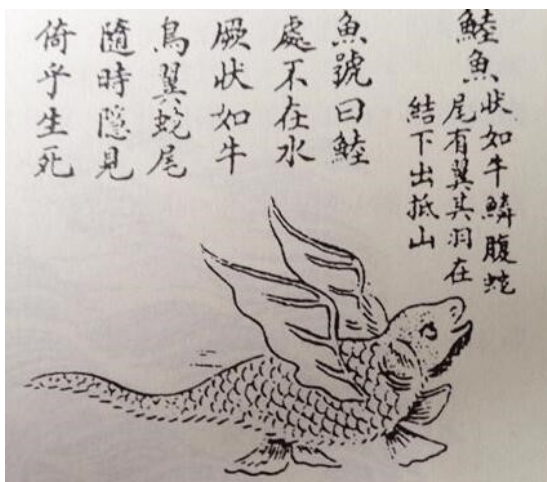 鯥魚
狀如牛鱗腹蛇
尾有翼其羽在
結下出抵山
魚號曰鯥
處不在水
厥状如牛
鳥翼蛇尾
隨時隱見
倚乎生死